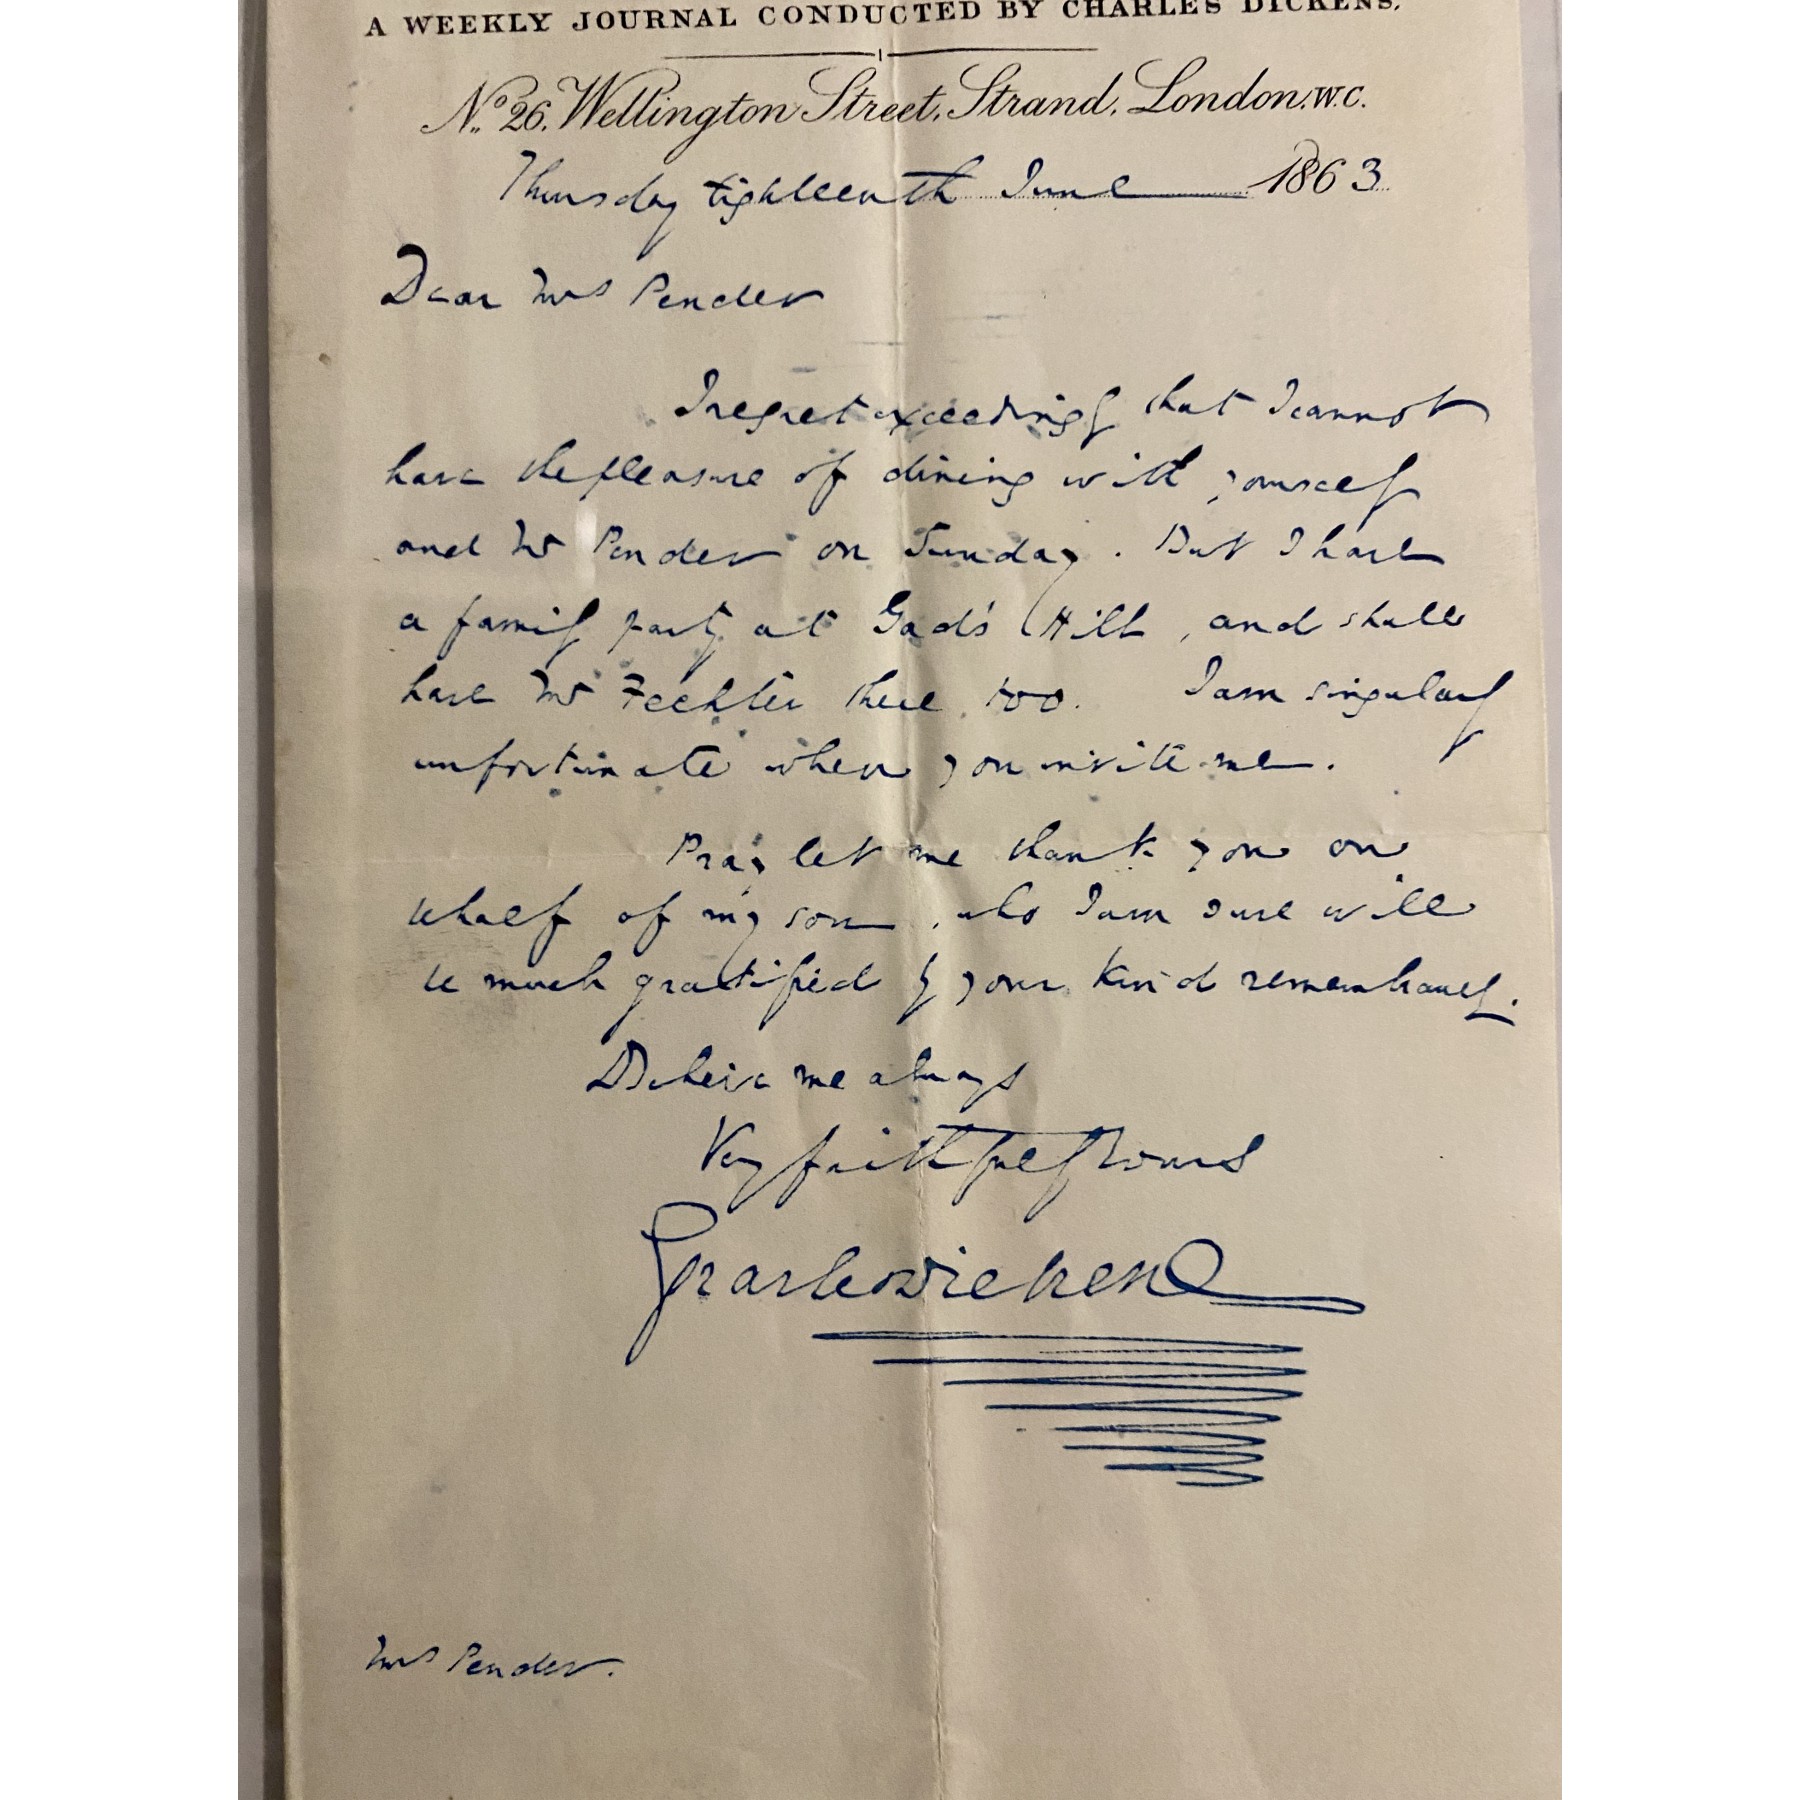 A WEEKLY JOURNAL CONDUCTED BY CHARLES DICKENS.
No. 26, Wellington Street, Strand, London. W.C.
Thursday Eighteenth June 1863
Dear Mrs Pender
I regret exceedingly that I cannot
have the pleasure of dining with yourself
and Mr Pender on Sunday. But I have
a family party at Gad's Hill, and shall
have Mr Fechter there too. I am singularly
unfortunate when you invite me.
Pray let me thank you on
behalf of my son, who I am sure will
be much gratified by your kind remembrance.
Believe me always
Very faithfully Yours
Charles Dickens
Mrs Pender.